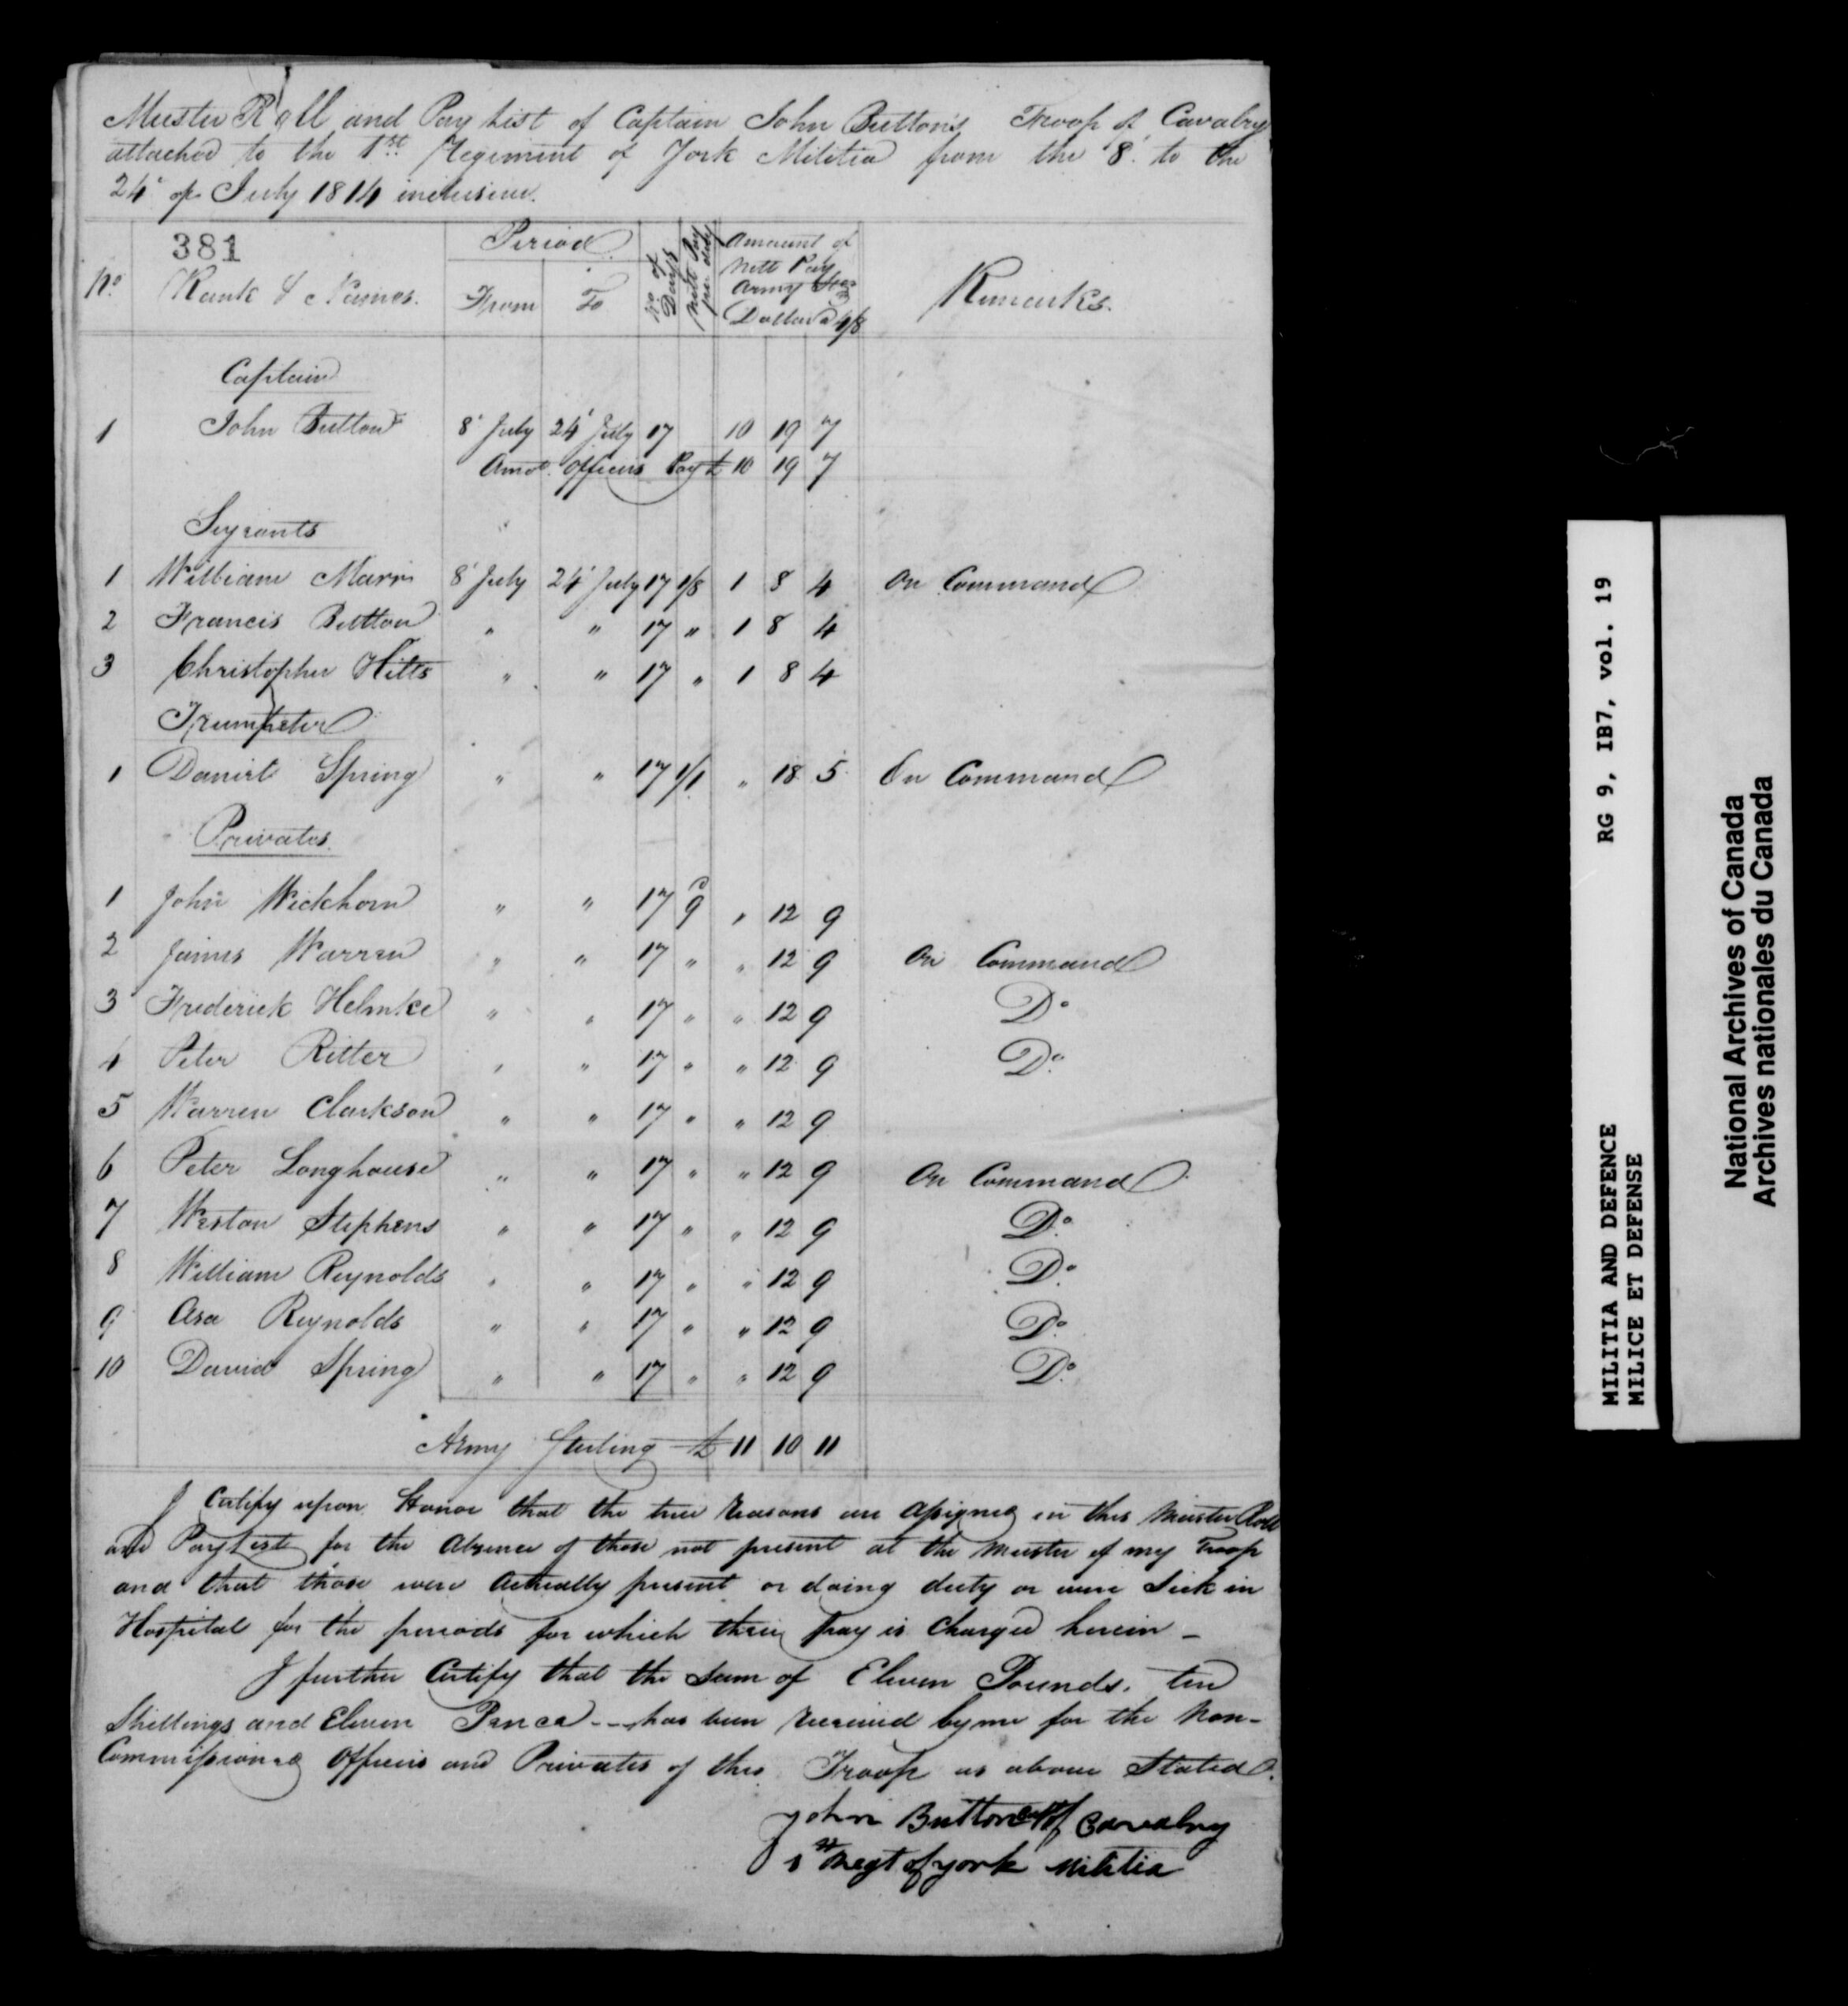 Muster Roll and Pay List of Captain John Button's Troop of Cavalry
attached to the 1st Regiment of York Militia from the 8' to the
24' of July 1814 inclusive.
381
No. Rank & Names. Period From To No of Days Nett Pay per day Amount of Nett Pay Army Dollar a 4/8 Remarks.
Captain
1 John Button 8' July 24' July 17 10 19 7
Amot. Officers Pay £ 10 19 7
Serjeants
1 William Marr 8' July 24' July 17 1/8 1 8 4 On Command
2 Francis Button " " 17 " 1 8 4
3 Christopher Hilts " " 17 " 1 8 4
Trumpeter
1 Daniel Spring " " 17 1/1 " 18 5 On Command
Privates
1 John Wickhorn " " 17 9d " 12 9
2 James Warren " " 17 " " 12 9 On Command
3 Frederick Helmke " " 17 " " 12 9 Do
4 Peter Ritter " " 17 " " 12 9 Do
5 Warren Clarkson " " 17 " " 12 9
6 Peter Longhouse " " 17 " " 12 9 On Command
7 Weston Stephens " " 17 " " 12 9 Do
8 William Reynolds " " 17 " " 12 9 Do
9 Asa Reynolds " " 17 " " 12 9 Do
10 David Spring " " 17 " " 12 9 Do
Army Sterling £ 11 10 11
I Certify upon Honor that the true reasons are assigned in this Muster Roll
and Pay List for the Absence of those not present at the Muster of my Troop
and that those were Actually present or doing duty or were Sick in
Hospital for the periods for which their pay is Charged herein -
I further Certify that the Sum of Eleven Pounds. ten
Shillings and Eleven Pence -- has been received by me for the Non-
Commissioned Officers and Privates of this Troop as above Stated.
John Button Capt of Cavalry
1st Regt of york Militia
MILITIA AND DEFENCE RG 9, IB7, vol. 19
MILICE ET DEFENSE
National Archives of Canada
Archives nationales du Canada